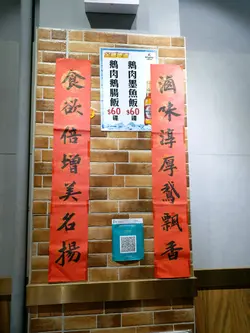 滷味淳厚鵝飄香
食欲倍增美名揚
鵝肉墨魚飯
$60
碟
鵝肉鵝腸飯
$60
碟